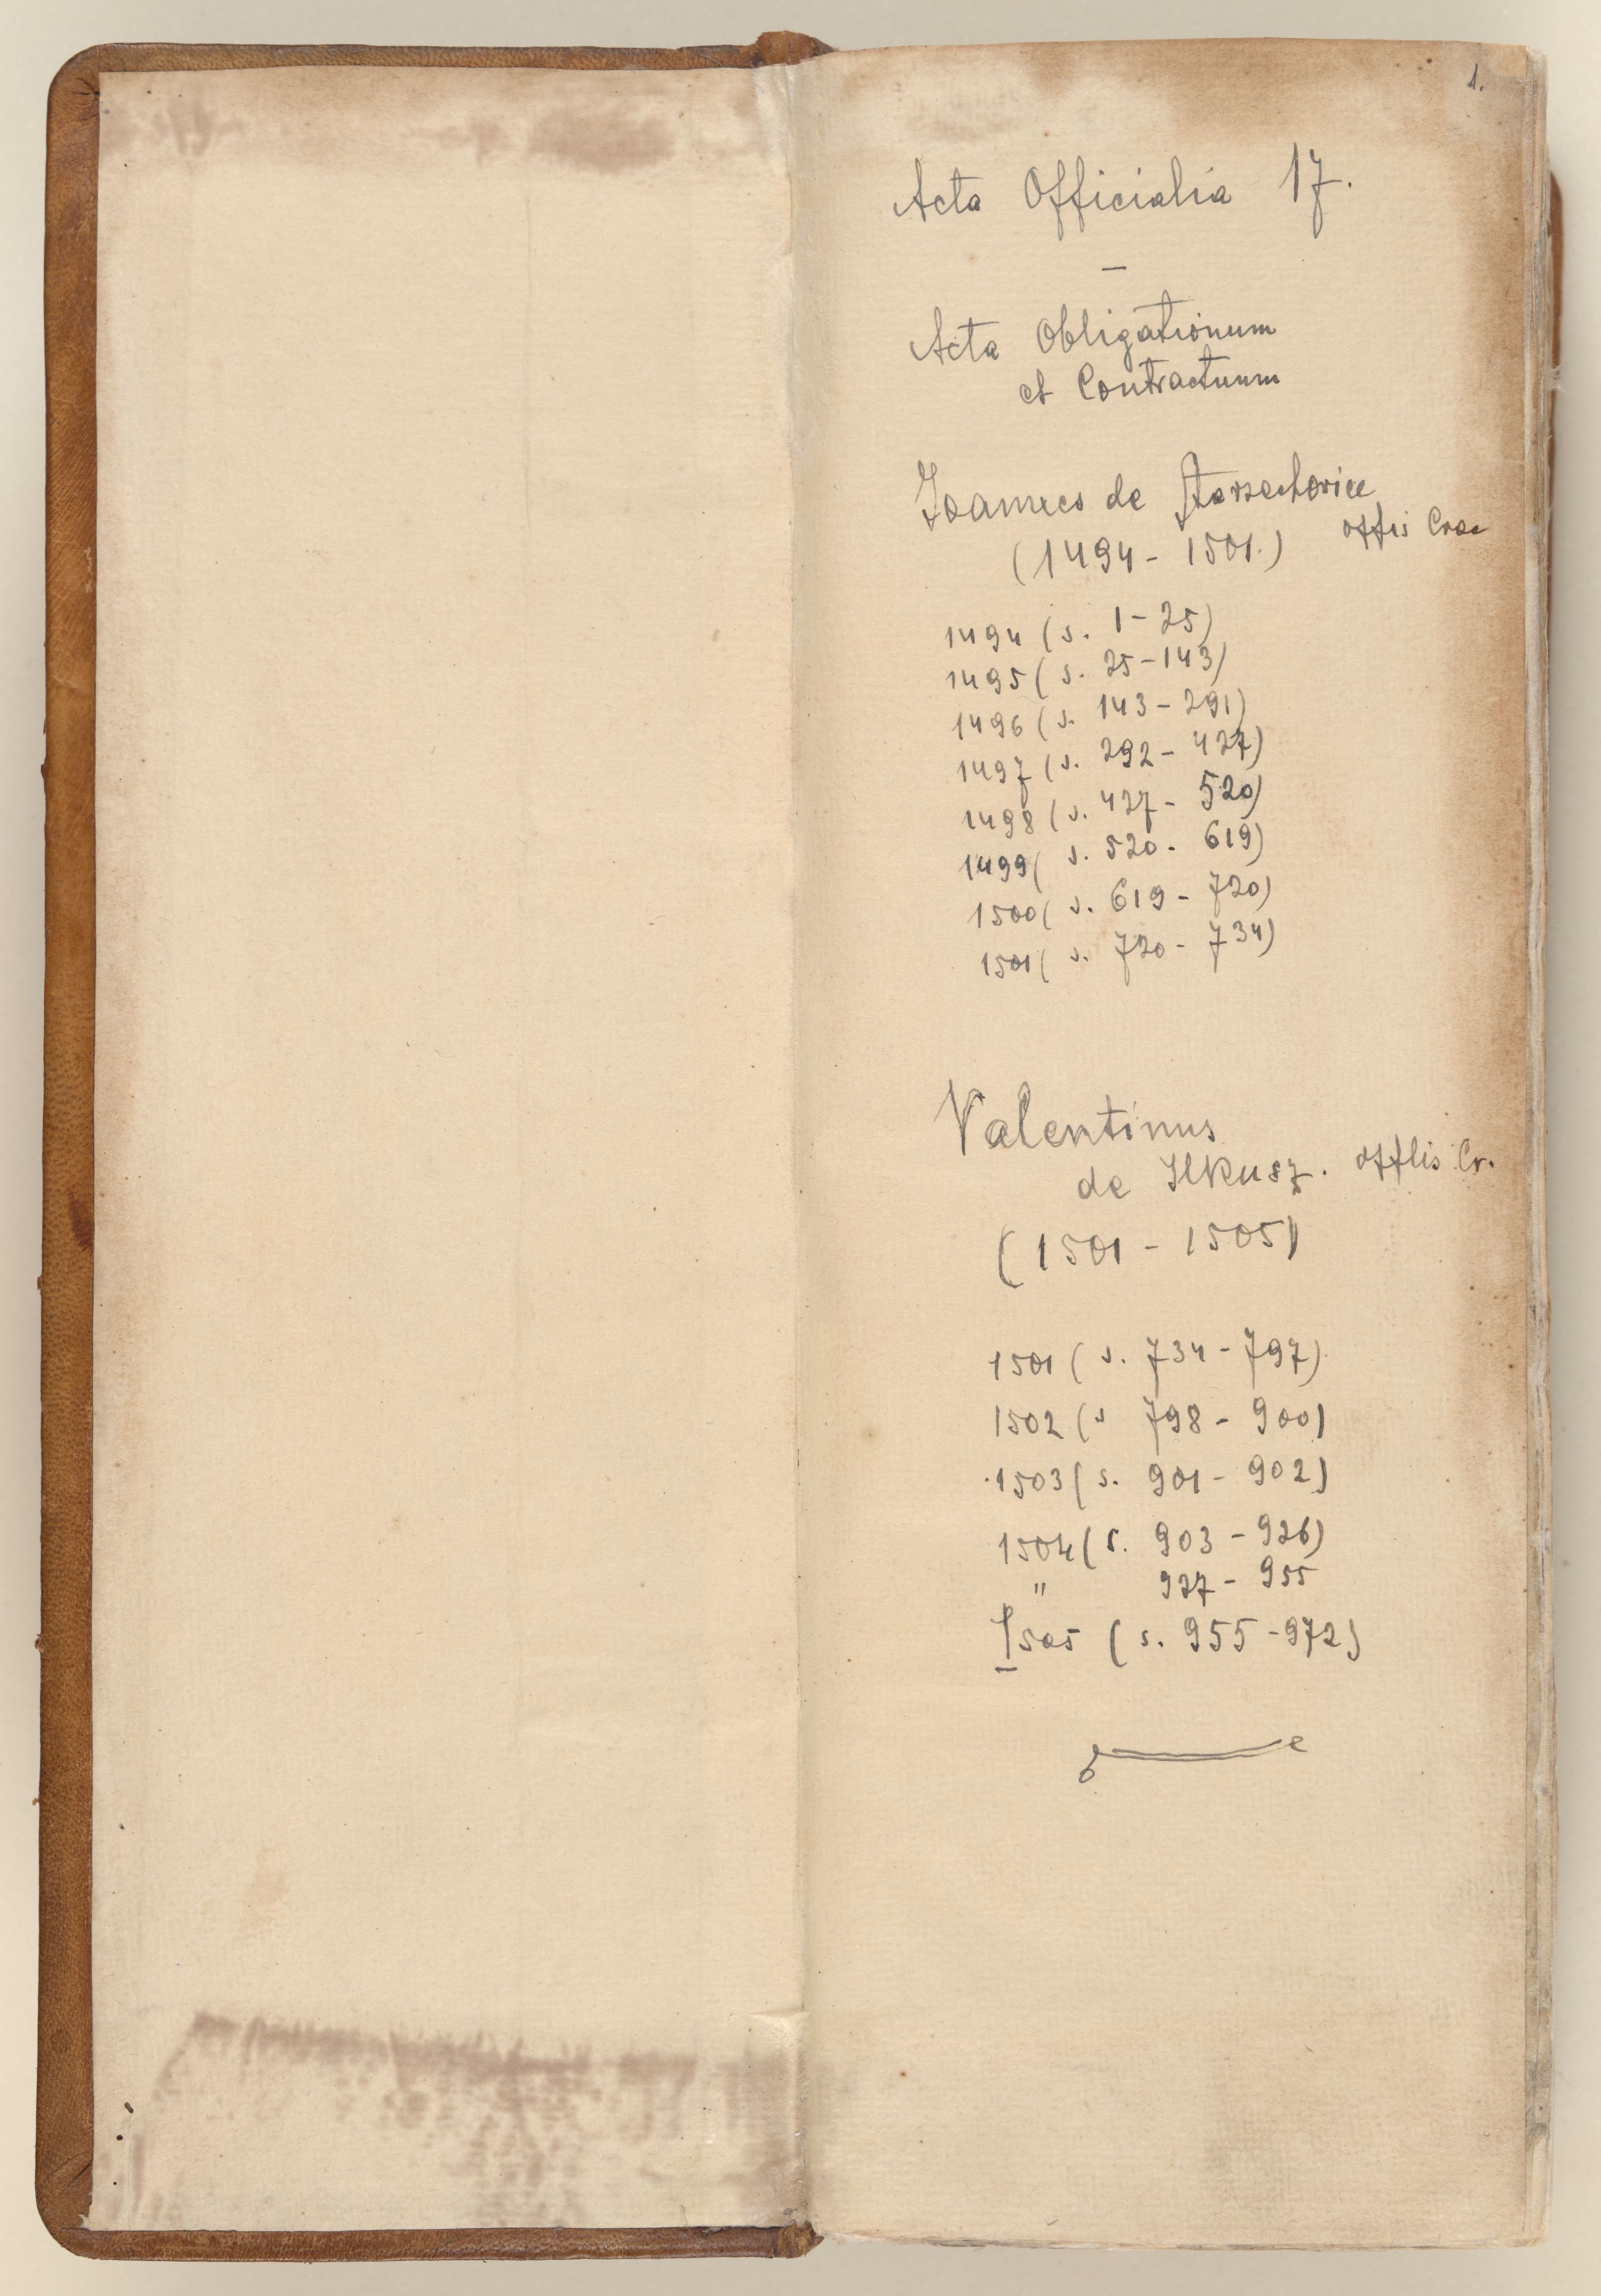 1.
Acta Officialia 17.
—
Acta Obligationum
et Contractuum
Joannes de Starzechovice
offis Crac
(1494 - 1501.)
1494 (s. 1 - 25)
1495 (s. 25 - 143)
1496 (s. 143 - 291)
1497 (s. 292 - 427)
1498 (s. 427 - 520)
1499 (s. 520 - 619)
1500 (s. 619 - 720)
1501 (s. 720 - 734)
Valentinus
de Ilkusz. offlis Cr.
(1501 - 1505)
1501 (s. 734 - 797)
1502 (s 798 - 900)
1503 (s. 901 - 902)
1504 (s. 903 - 926)
" 927 - 955
1505 (s. 955 - 972)